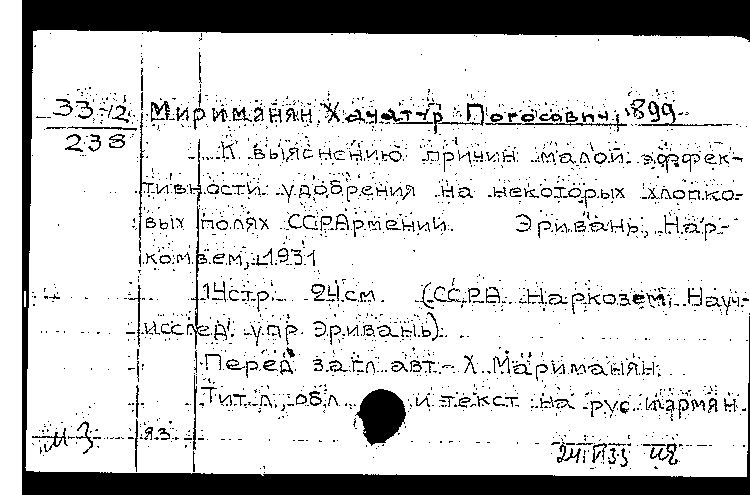 33-12
238
Мириманян, Хачатур Погосович, 1899-
К выяснению причин малой эффек-
тивности удобрения на некоторых хлопко-
вых полях ССРАрмении. Эривань, Нар-
комзем, 1931
14стр. 24см. (ССРА Наркозем. Науч-
исслед. упр. Эривань)
Перед загл. авт.- Х. Мариманян.
Тит. л., обл. и текст на рус. и армян.
МЗ 93
24/VI33